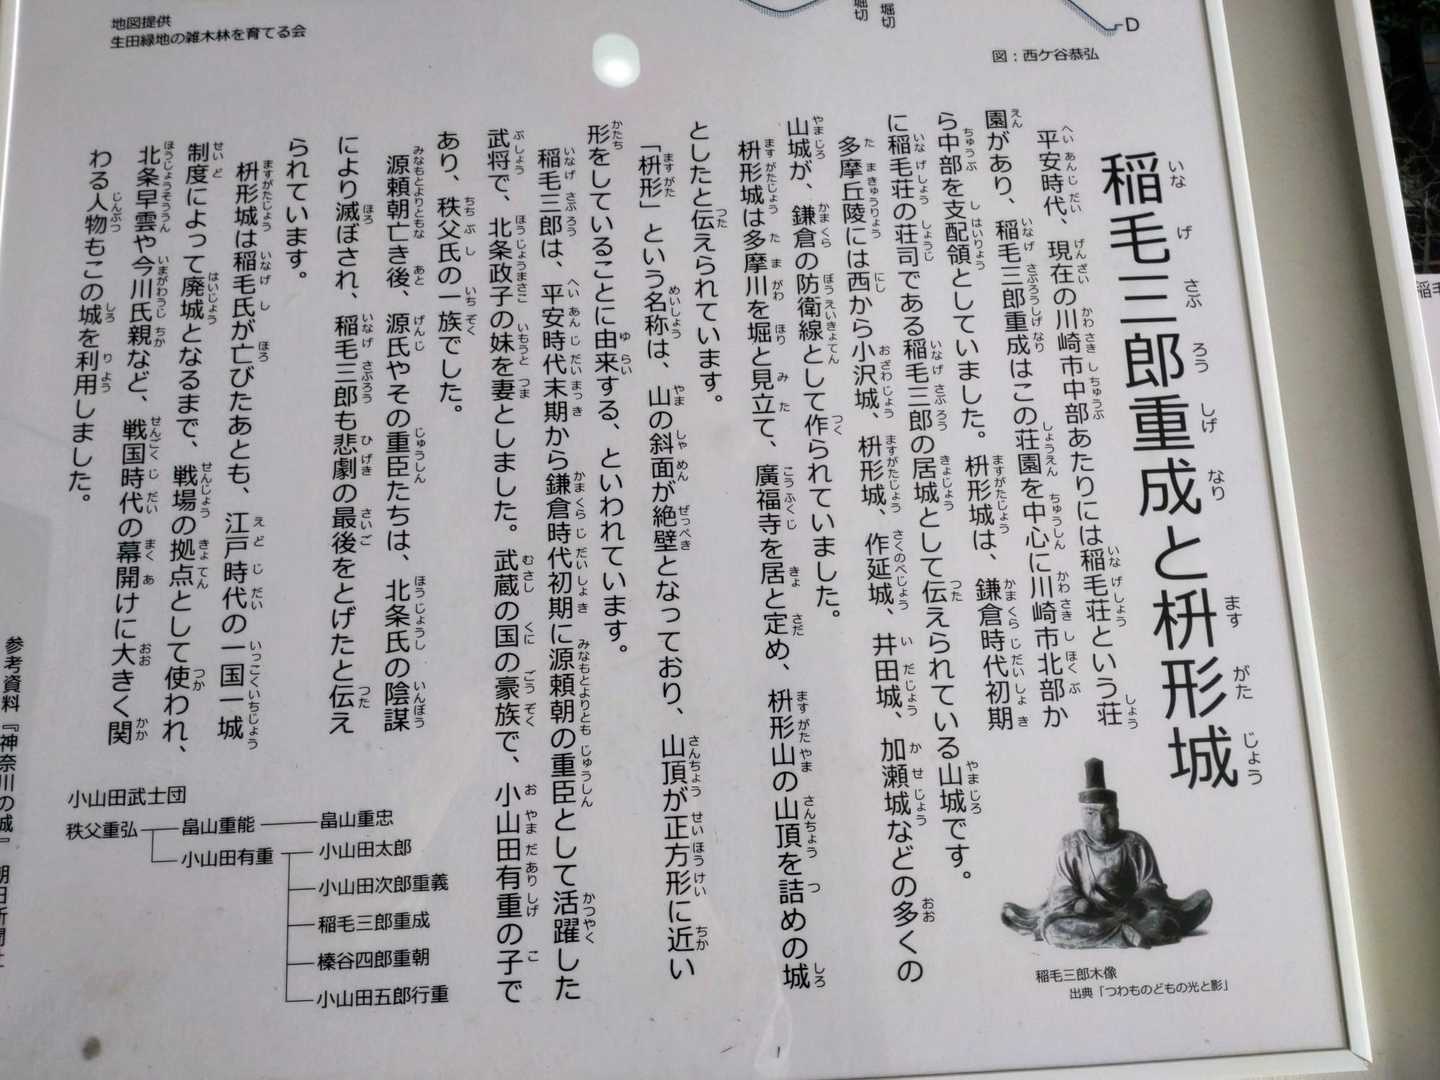 地図提供
生田緑地の雑木林を育てる会
堀切
堀切
D
図：西ケ谷恭弘
稲毛三郎重成と枡形城
いな げ さぶ ろう しげ なり ます がた じょう
平安時代、現在の川崎市中部あたりには稲毛荘という荘
園があり、稲毛三郎重成はこの荘園を中心に川崎市北部か
ら中部を支配領としていました。枡形城は、鎌倉時代初期
に稲毛荘の荘司である稲毛三郎の居城として伝えられている山城です。
多摩丘陵には西から小沢城、枡形城、作延城、井田城、加瀬城などの多くの
山城が、鎌倉の防衛線として作られていました。
枡形城は多摩川を堀と見立て、廣福寺を居と定め、枡形山の山頂を詰めの城
としたと伝えられています。
「枡形」という名称は、山の斜面が絶壁となっており、山頂が正方形に近い
形をしていることに由来する、といわれています。
稲毛三郎は、平安時代末期から鎌倉時代初期に源頼朝の重臣として活躍した
武将で、北条政子の妹を妻としました。武蔵の国の豪族で、小山田有重の子で
あり、秩父氏の一族でした。
源頼朝亡き後、源氏やその重臣たちは、北条氏の陰謀
により滅ぼされ、稲毛三郎も悲劇の最後をとげたと伝え
られています。
枡形城は稲毛氏が亡びたあとも、江戸時代の一国一城
制度によって廃城となるまで、戦場の拠点として使われ、
北条早雲や今川氏親など、戦国時代の幕開けに大きく関
わる人物もこの城を利用しました。
稲毛三郎木像
出典「つわものどもの光と影」
小山田武士団
秩父重弘 畠山重能 畠山重忠
小山田有重 小山田太郎
小山田次郎重義
稲毛三郎重成
榛谷四郎重朝
小山田五郎行重
参考資料『神奈川の城』朝日新聞社
稲毛